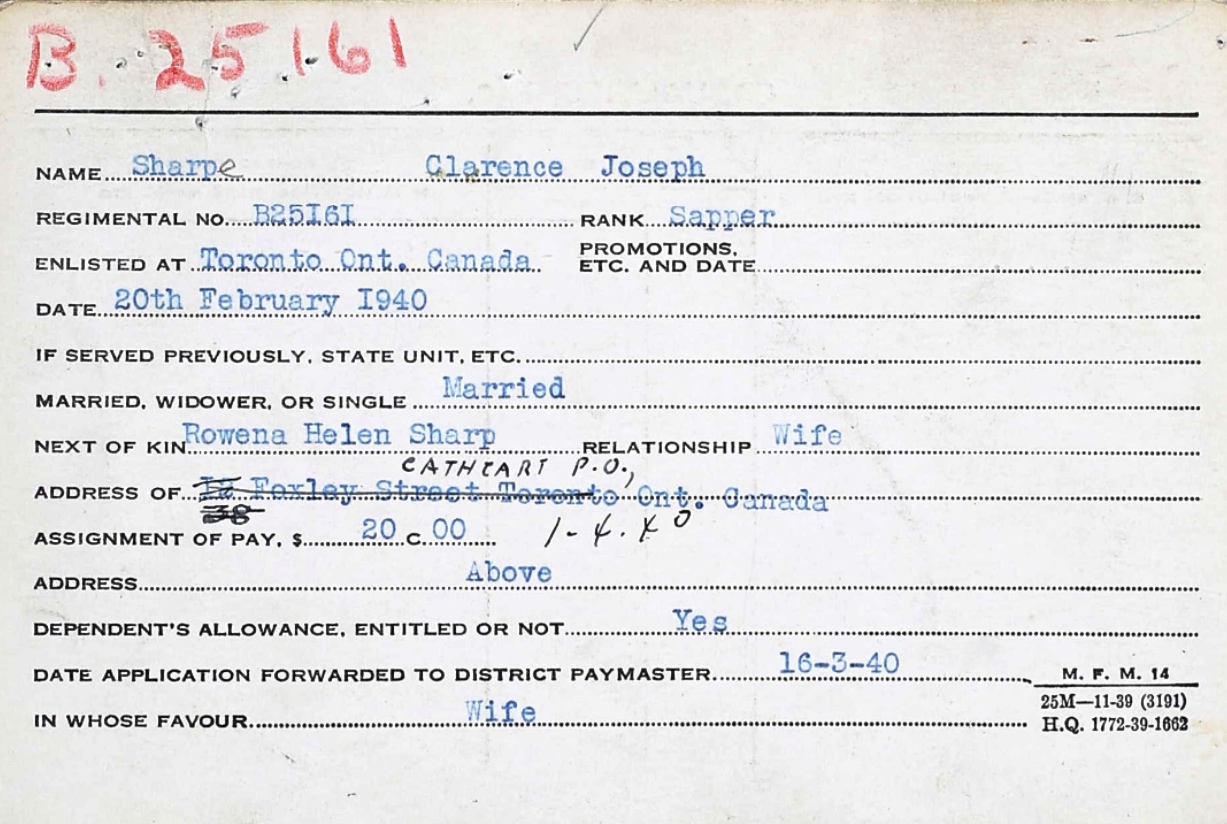 B. 25161
NAME Sharpe Clarence Joseph
REGIMENTAL NO. B25I6I RANK Sapper
ENLISTED AT Toronto Ont. Canada PROMOTIONS, ETC. AND DATE
DATE 20th February I940
IF SERVED PREVIOUSLY, STATE UNIT, ETC.
MARRIED, WIDOWER, OR SINGLE Married
NEXT OF KIN Rowena Helen Sharp RELATIONSHIP Wife
CATHCART P.O.,
ADDRESS OF Foxley Street Toronto Ont. Canada
38
ASSIGNMENT OF PAY, $ 20 C. 00 1-4.40
ADDRESS Above
DEPENDENT'S ALLOWANCE, ENTITLED OR NOT Yes
DATE APPLICATION FORWARDED TO DISTRICT PAYMASTER 16-3-40
IN WHOSE FAVOUR Wife
M. F. M. 14
25M—11-39 (3191)
H.Q. 1772-39-1662